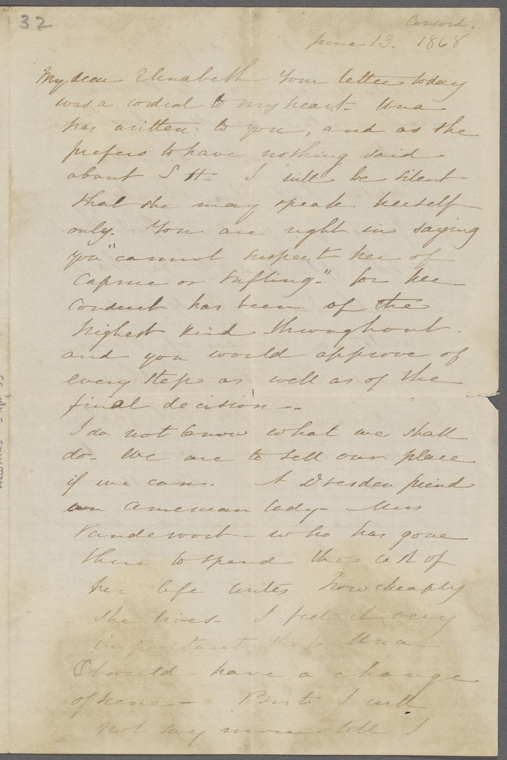 32
Concord.
June 13. 1868
My dear Elizabeth - Your letter today
was a cordial to my heart. Una
has written to you, and as she
prefers to have nothing said
about S H - I will be silent
that she may speak herself
only. You are right in saying
you "cannot suspect her of
caprice or trifling" - for her
conduct has been of the
highest kind throughout.
and you would approve of
every step as well as of the
final decision -
I do not know what we shall
do. We are to sell our place
if we can. A Dresden friend
an American lady - Mrs
Vandervoort - who has gone
there to spend the rest of
her life writes how cheaply
she lives - I feel it very
important that Una
should have a change
of scene - But I will
not say more till I